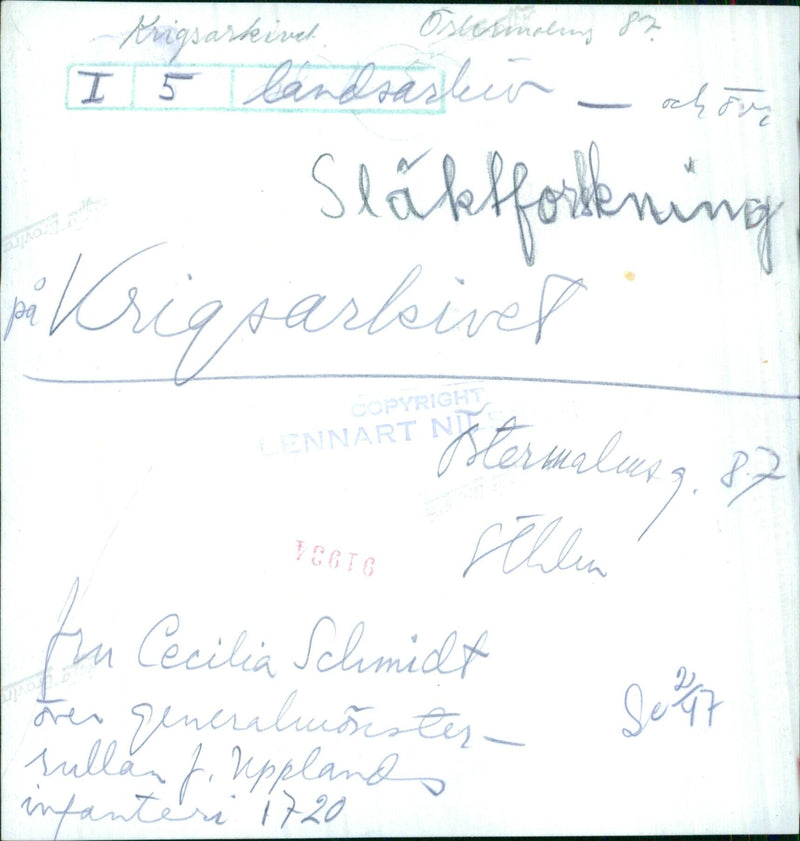 Krigsarkivet Östermalmsg 87
I 5 landsarkiv — och öv
Släktforskning
på Krigsarkivet
COPYRIGHT
LENNART NIL
Östermalmsg. 87
Sthlm
91934
fru Cecilia Schmidt
över generalmönster-
rullan f. Upplands
infanteri 1720
Se 2/47